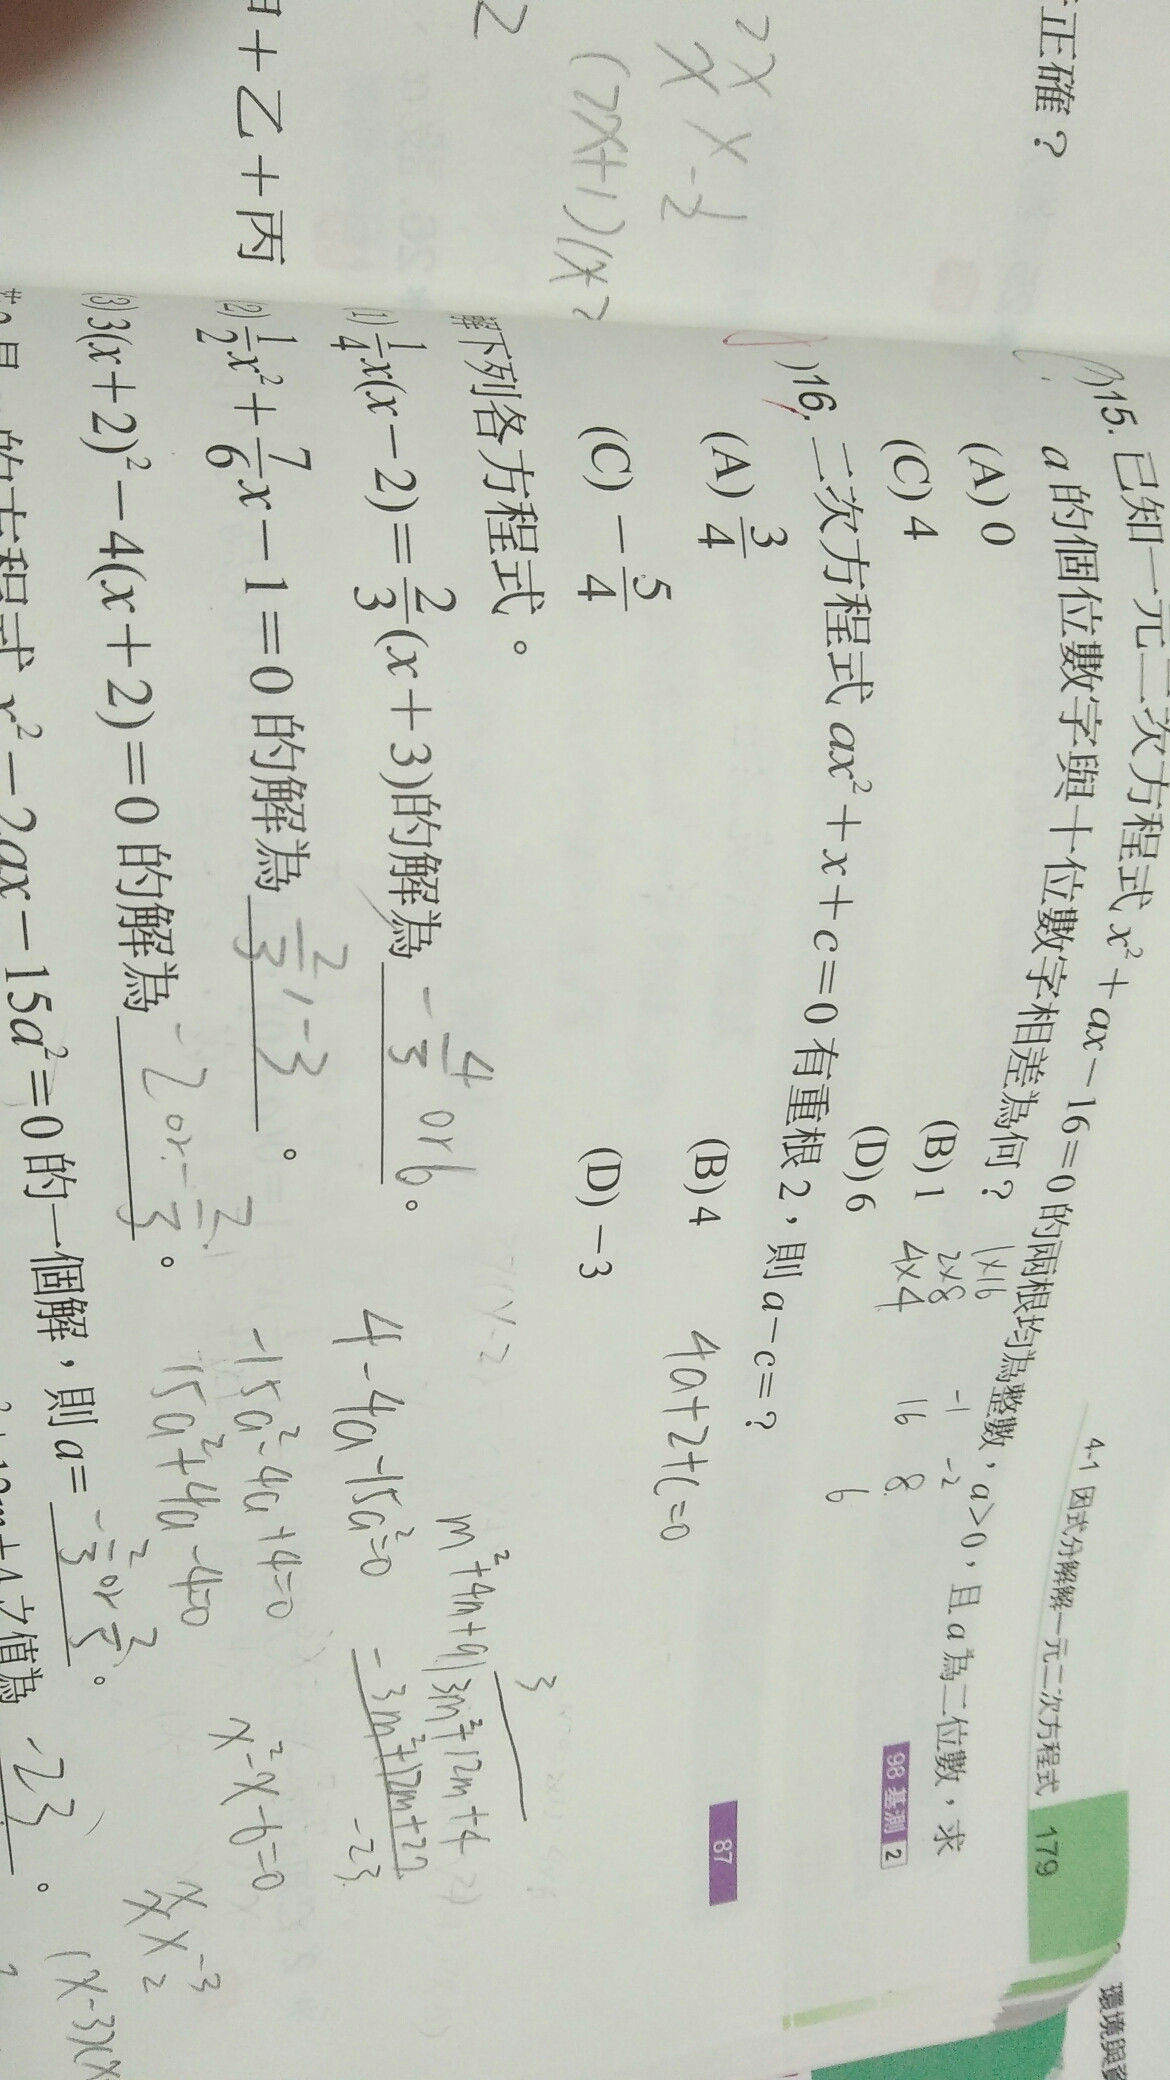 4-1 因式分解解一元二次方程式 179
環境與資
15. 已知一元二次方程式 x²+ax−16=0 的兩根均為整數，a>0，且 a 為二位數，求
a 的個位數字與十位數字相差為何？
98 基測 2
(A) 0 (B) 1
(C) 4 (D) 6
1×16
2×8
4×4
-1 -2
16 8
6
16. 二次方程式 ax²+x+c=0 有重根 2，則 a−c=？
87
(A) 3/4 (B) 4
(C) −5/4 (D) −3
4a+2+c=0
解下列各方程式。
(1) 1/4 x(x−2)=2/3 (x+3) 的解為 -4/3 or 6 。
(2) 1/2 x²+7/6 x−1=0 的解為 2/3, -3 。
(3) 3(x+2)²−4(x+2)=0 的解為 -2 or -2/3 。
的方程式 x²−2ax−15a²=0 的一個解，則 a= -2/3 or 2/5 。
+4 之值為 -23 。
4-4a-15a²=0
-15a²-4a+4=0
15a²+4a-4=0
3
m²+4m+9) 3m²+12m+4
-3m²+12m+27
-23
x²-x-6=0
x -3
x 2
(x-3)(x
正確？
2x
x
(2x+1)(x
2
+乙+丙